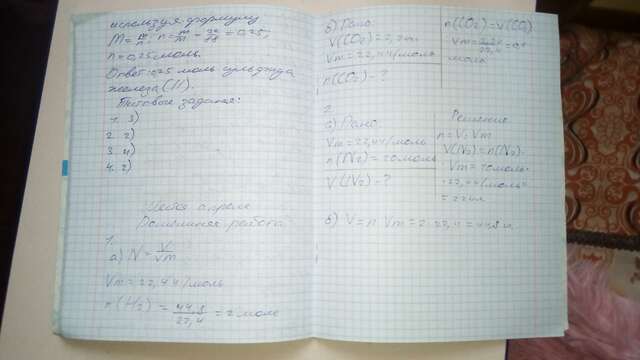 используя формулу
M = m/n; n = m/M = 22/88 = 0,25;
n = 0,25 моль.
Ответ: 0,25 моль сульфида
железа (II).
Типовые задания:
1. 3)
2. 2)
3. 4)
4. 2)
Шестое апреля
Домашняя работа
1.
а) N = V/Vm
Vm = 22,4 л/моль
n(H2) = 44,8/22,4 = 2 моль
б) Дано
V(CO2) = 2,24л
Vm = 22,4 л/моль
n(CO2) - ?
n(CO2) = V(CO2)
Vm = 2,24/22,4 = 0,1
моль
2.
а) Дано
Vm = 22,4 л/моль
n(N2) = 10 моль
V(N2) - ?
Решение
n = V; Vm
V(N2) = n(N2).
Vm = 10 моль.
·22,4 л/моль =
= 224л
б) V = n · Vm = 2 · 22,4 = 44,8 л.